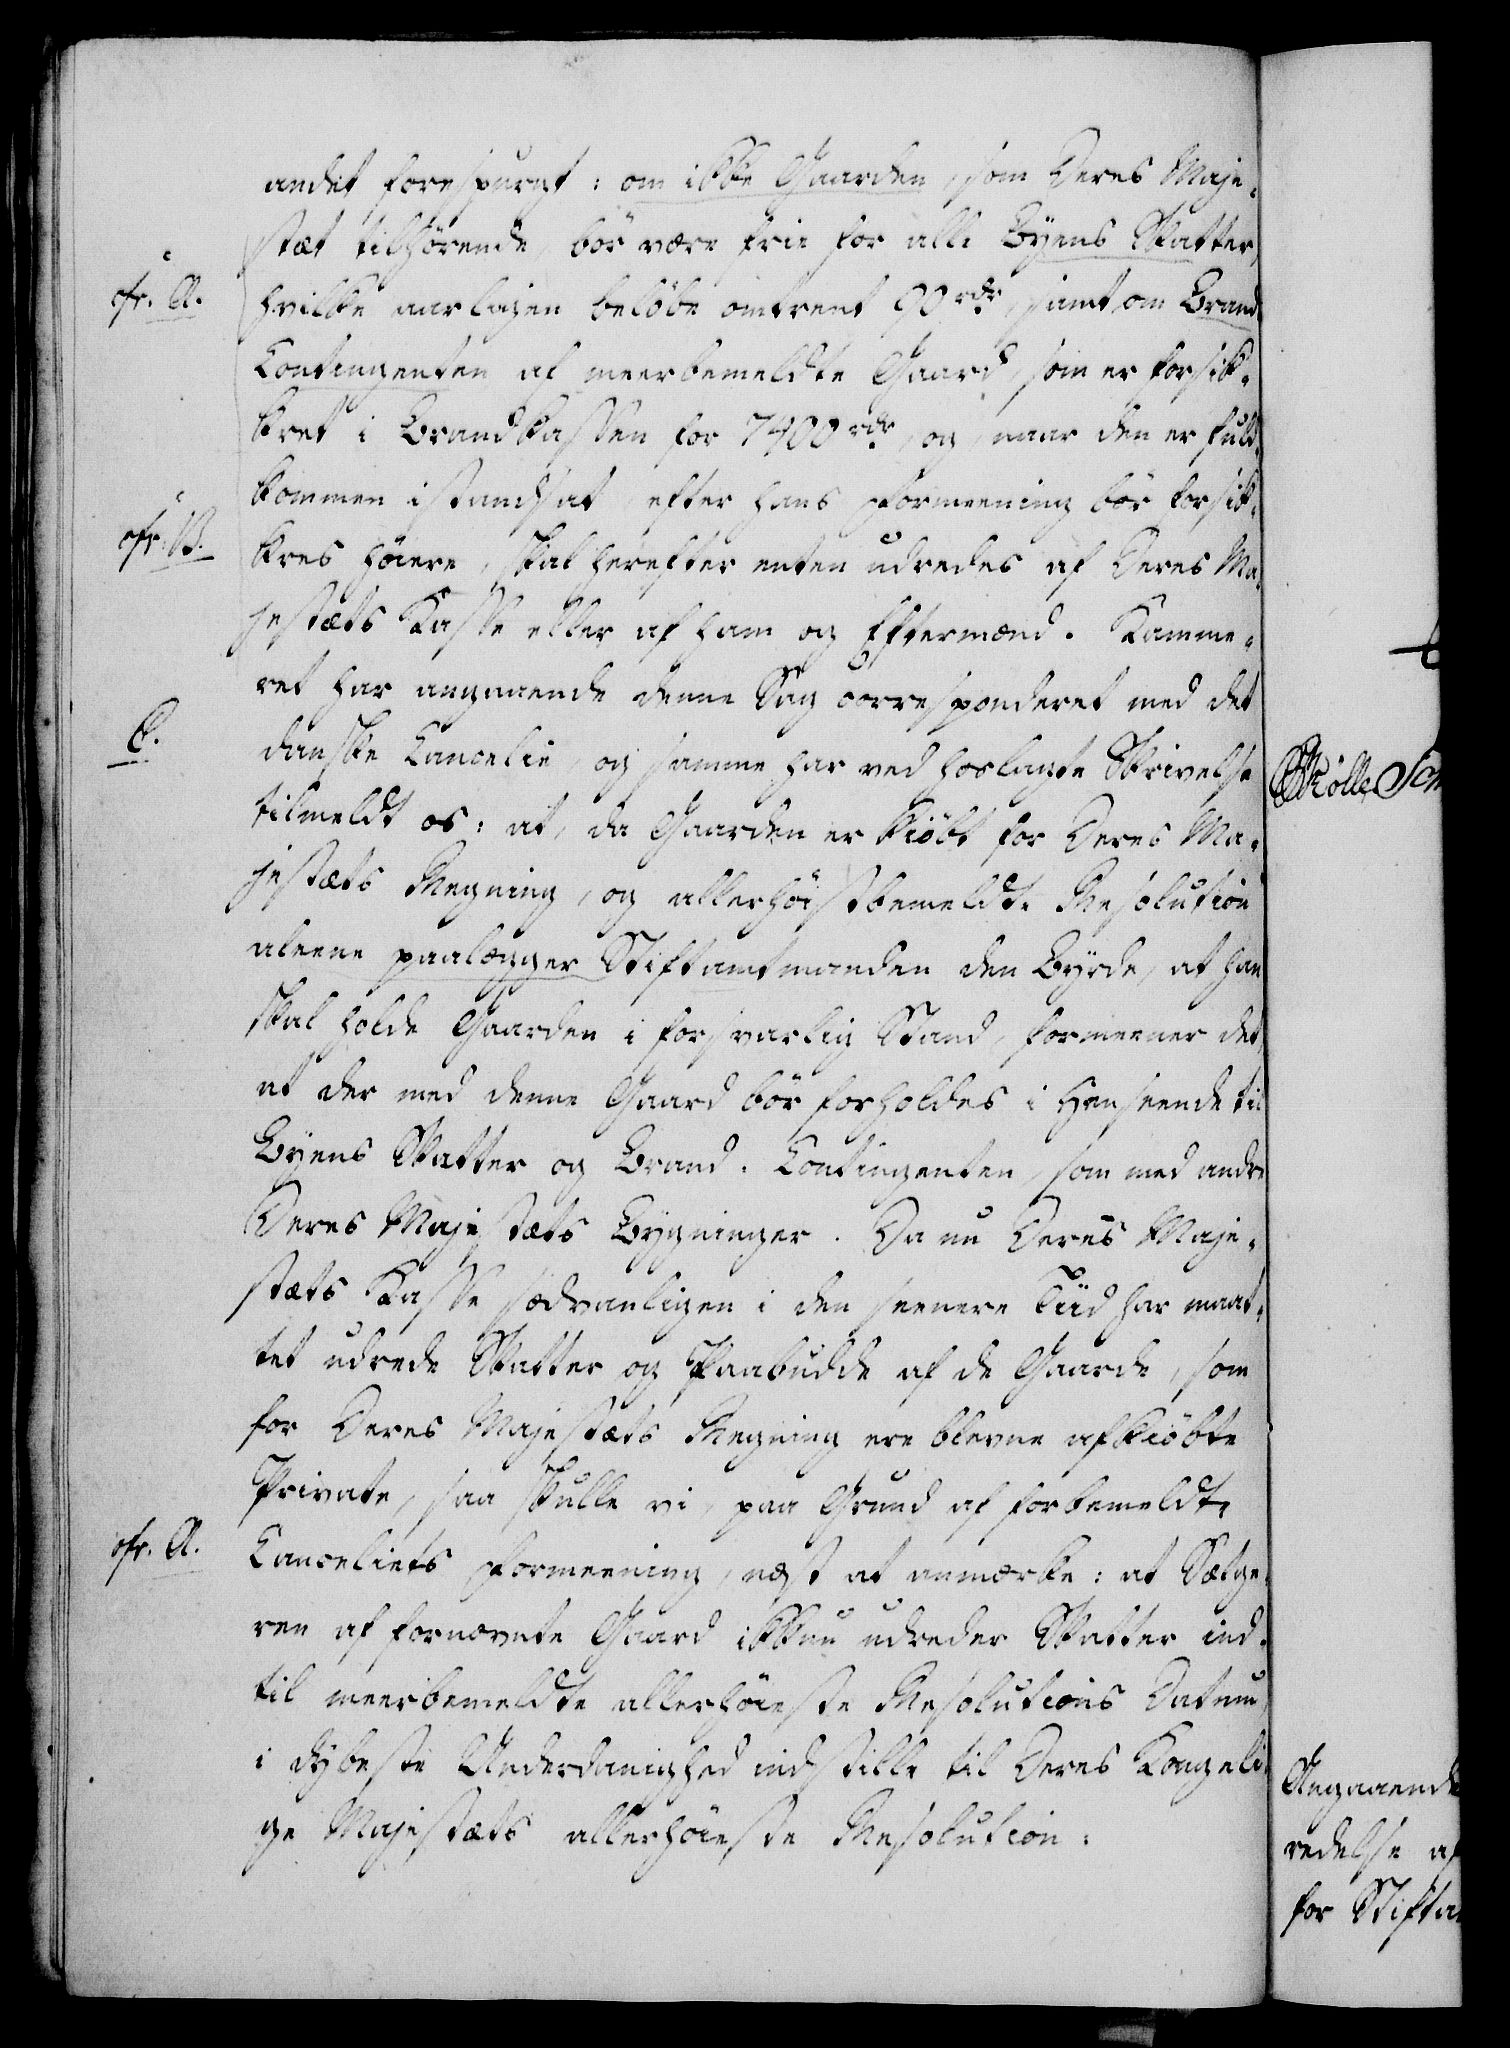 andet forespurgt: om ikke Gaarden, som Deres Maje-
stæt tilhørende, bör være frie for alle Byens Skatter,
cfr. A.
hvilke aarligen beløbe omtrent 90 rdr, samt om Brand
Contingenten af meerbemeldte Gaard, som er forsik-
kret i Brandkassen for 7400 rdr, og, naar den er fuld-
kommen istandsat, efter hans Formeening bör forsik-
cfr. B.
kres høiere, skal herefter enten udredes af Deres Ma-
jestæts Kasse eller af ham og Eftermænd. Kamme-
ret har angaaende denne Sag corresponderet med det
C.
danske Cancelie, og samme har ved hoslagte Skrivelse
tilmeldt os: at, da Gaarden er kiöbt for Deres Ma-
jestæts Regning, og allerhöistbemeldte Resolution
aleene paalægger Stiftamtmanden den Byrde, at han
skal holde Gaarden i forsvarlig Stand, formeener det,
at der med denne Gaard bör forholdes i Henseende til
Byens Skatter og Brand-Contingenten, som med andre
Deres Majestæts Bygninger. Da nu Deres Maje-
stæts Kasse sædvanligen i den seenere Tiid har maat-
tet udrede Skatter og Paabudde af de Gaarde, som
for Deres Majestæts Regning ere blevne afkiöbte
Private, saa skulle vi, paa Grund af forbemeldte
cfr. A.
Canceliets Formeening, næst at anmærke: at Sælge-
ren af fornævnte Gaard ikkun udreder Skatter ind-
til meerbemeldte allerhöieste Resolutions Datum,
i dybeste Underdanighed indstille til Deres Kongeli-
ge Majestæts allerhöieste Resolution:
Angaaende
redelse af
for Stifta